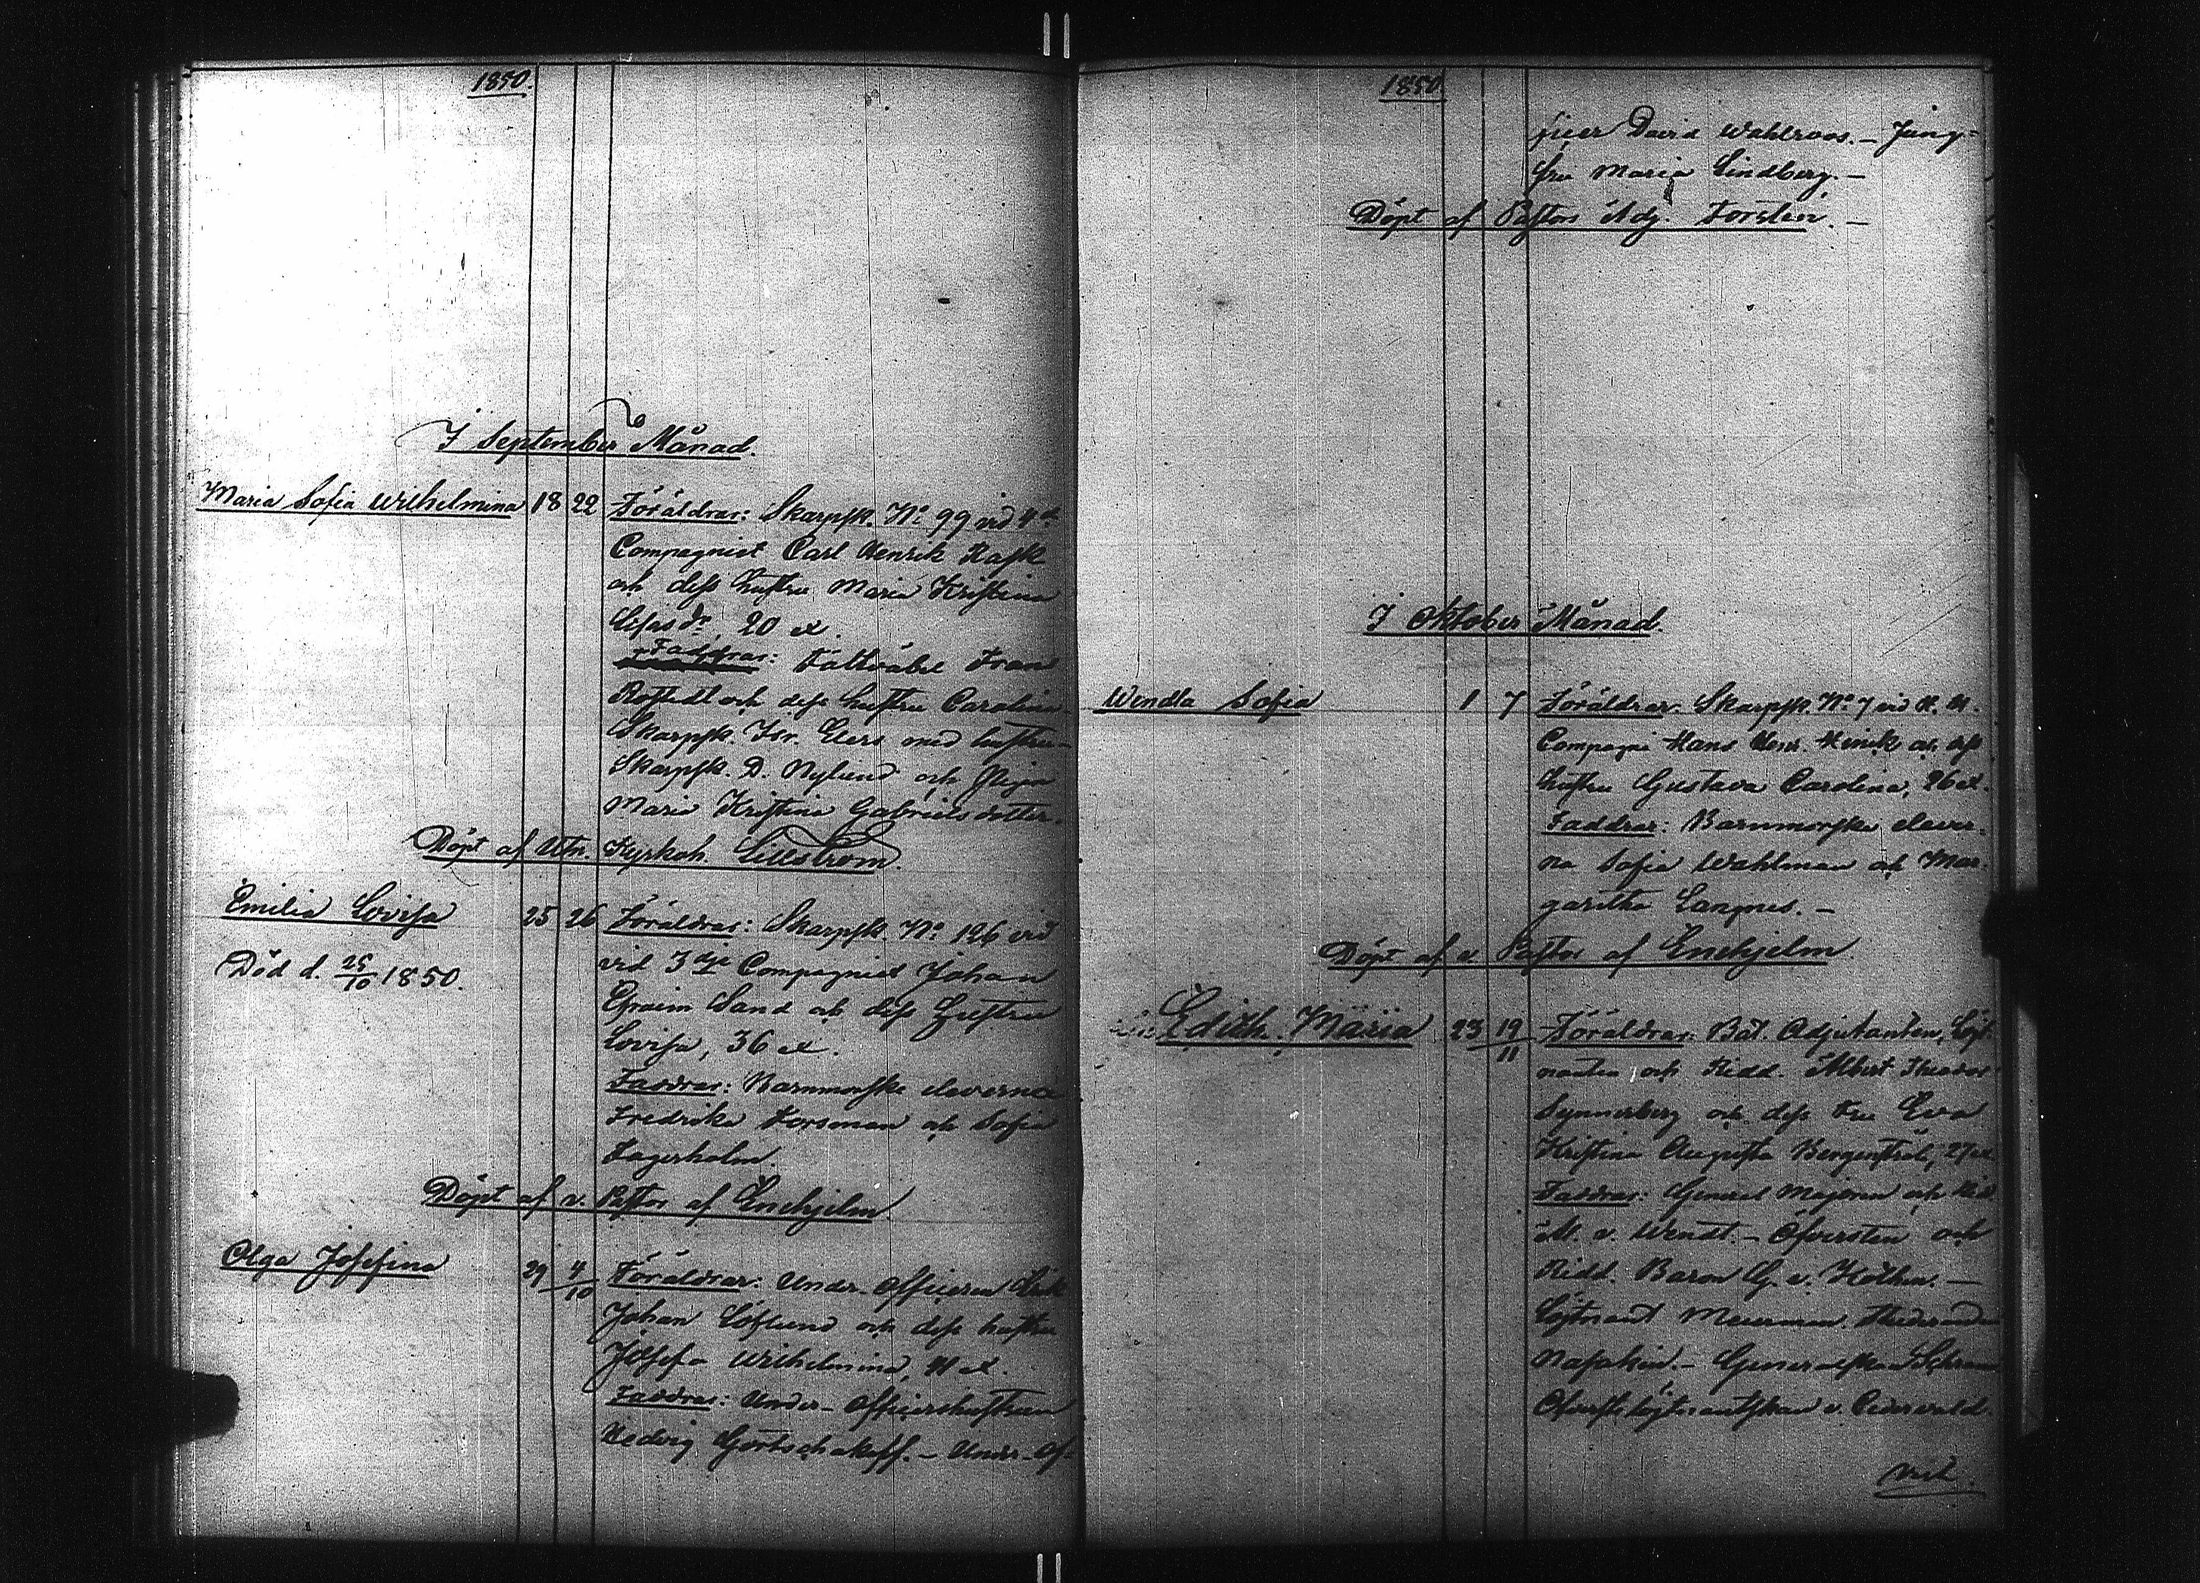 1850.
I September Månad.
Maria Sofia Wilhelmina 18 22 Föräldrar: Skarpsk. No 99 vid 4de
Compagniet Carl Henrik Rask
och dess hustru Maria Kristina
20 et.
Faddrar: Fältväbel Frans
och dess hustru Carolina
Skarpsk. Isr. Elers med hustru
Skarpsk. D. Nylund och Pigan
Maria Kristina Gabrielsdotter.
Döpt af Utn. Kyrkoh. Lillström.
Emilia Lovisa 25 26 Föräldrar: Skarpsk. No 126 vid
Död d. 25/10 1850. vid 3dje Compagniet Johan
Efraim Sand och dess Hustru
Lovisa, 36 et.
Faddrar: Barnmorske eleverna
Fredrika Forsman och Sofia
Fagerholm.
Döpt af v. Pastor af Enehjelm.
Olga Josefina 29 4/10 Föräldrar: Under-Officeren Erik
Johan Löflund och dess hustru
Josefa Wilhelmina, et.
Faddrar: Under-Officershustrun
Hedvig Gortschakoff. – Under-Of-
1850
ficer David Wahlroos. – Jung-
fru Maria Lindberg. –
Döpt af Pastors Adj. –
I Oktober Månad.
Wendla Sofia 1 7 Föräldrar: Skarpsk. No 7 vid
Compagni Hans Henr. och dess
hustru Gustava Carolina, 26 et.
Faddrar: Barnmorske elever-
na Sofia Wahlman och Mar-
garetha Langnes. –
Döpt af v. Pastor af Enehjelm
Edith Maria 23 19/11 Föräldrar: Bat. Adjutanten, Löjt-
nanten och Ridd. Albert Theodor
Synnerberg och dess Fru Eva
Kristina Augusta Bergenstråle, 27 et.
Faddrar: General Majoren och Ridd
M. v. Wendt. – Öfversten och
Ridd. Baron G. v. Kothen. –
Löjtnant Meurman,
– Generalskan Schram
Öfverstelöjtnantskan v.